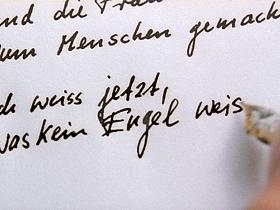 nd die Frau
zum Menschen gemach
ch weiss jetzt,
was kein Engel weis